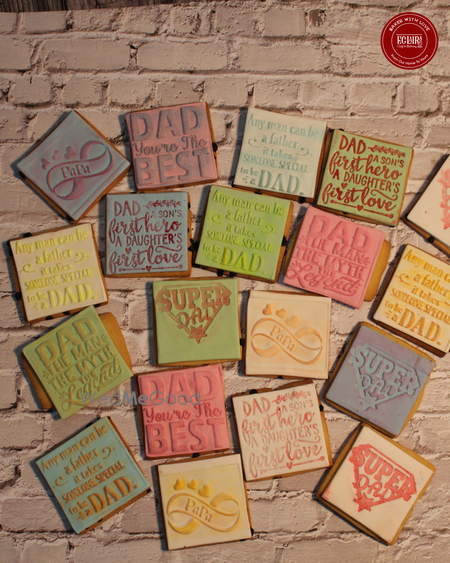 BAKED WITH LOVE
ECLAIR!
From Our Home To Yours
PaPa
DAD
You're The
BEST
Any man can be
a father
it takes
SOMEONE SPECIAL
to be a DAD.
DAD A SON'S
first hero
A DAUGHTER'S
first love
DAD A SON'S
first hero
A DAUGHTER'S
first love
Any man can be
a father
it takes
SOMEONE SPECIAL
to be a DAD.
DAD
THE MAN
THE MYTH
THE Legend
Any man can be
a father
it takes
SOMEONE SPECIAL
to be a DAD.
Any man can be
a father
it takes
SOMEONE SPECIAL
to be a DAD.
SUPER
DAD
PaPa
DAD
THE MAN
THE MYTH
THE Legend
SUPER
DAD
DAD
You're The
BEST
DAD A SON'S
first hero
A DAUGHTER'S
first love
Any man can be
a father
it takes
SOMEONE SPECIAL
to be a DAD.
PaPa
SUPER
DAD